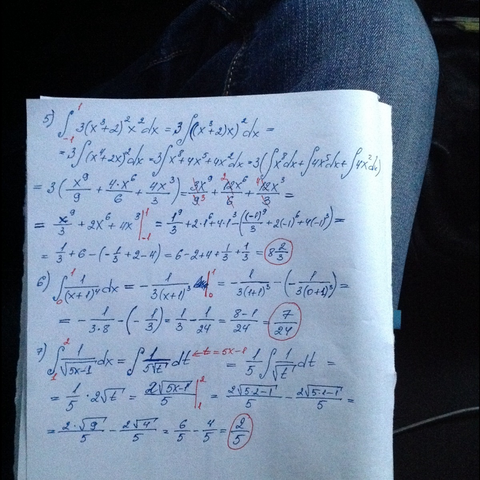 5) ∫₋₁¹ 3(x³+2)²x²dx = 3∫((x³+2)x)²dx =
= 3∫(x⁴+2x)²dx = 3∫x⁸+4x⁵+4x²dx = 3(∫x⁸dx+∫4x⁵dx+∫4x²dx)
= 3(x⁹/9 + 4·x⁶/6 + 4x³/3) = 3x⁹/9 + 12x⁶/6 + 12x³/3 =
= x⁹/3 + 2x⁶ + 4x³ |₋₁¹ = 1⁹/3 + 2·1⁶ + 4·1³ - ((-1)⁹/3 + 2(-1)⁶ + 4(-1)³) =
= 1/3 + 6 - (-1/3 + 2 - 4) = 6 - 2 + 4 + 1/3 + 1/3 = 8 2/3
6) ∫₀¹ 1/(x+1)⁴ dx = - 1/3(x+1)³ |₀¹ = - 1/3(1+1)³ - (- 1/3(0+1)³) =
= - 1/3·8 - (- 1/3) = 1/3 - 1/24 = 8-1/24 = 7/24
7) ∫₁² 1/√5x-1 dx = ∫ 1/5√t dt ← t = 5x-1 = 1/5 ∫ 1/√t dt =
= 1/5 · 2√t = 2√5x-1/5 |₁² = 2√5·2-1/5 - 2√5·1-1/5 =
= 2·√9/5 - 2√4/5 = 6/5 - 4/5 = 2/5